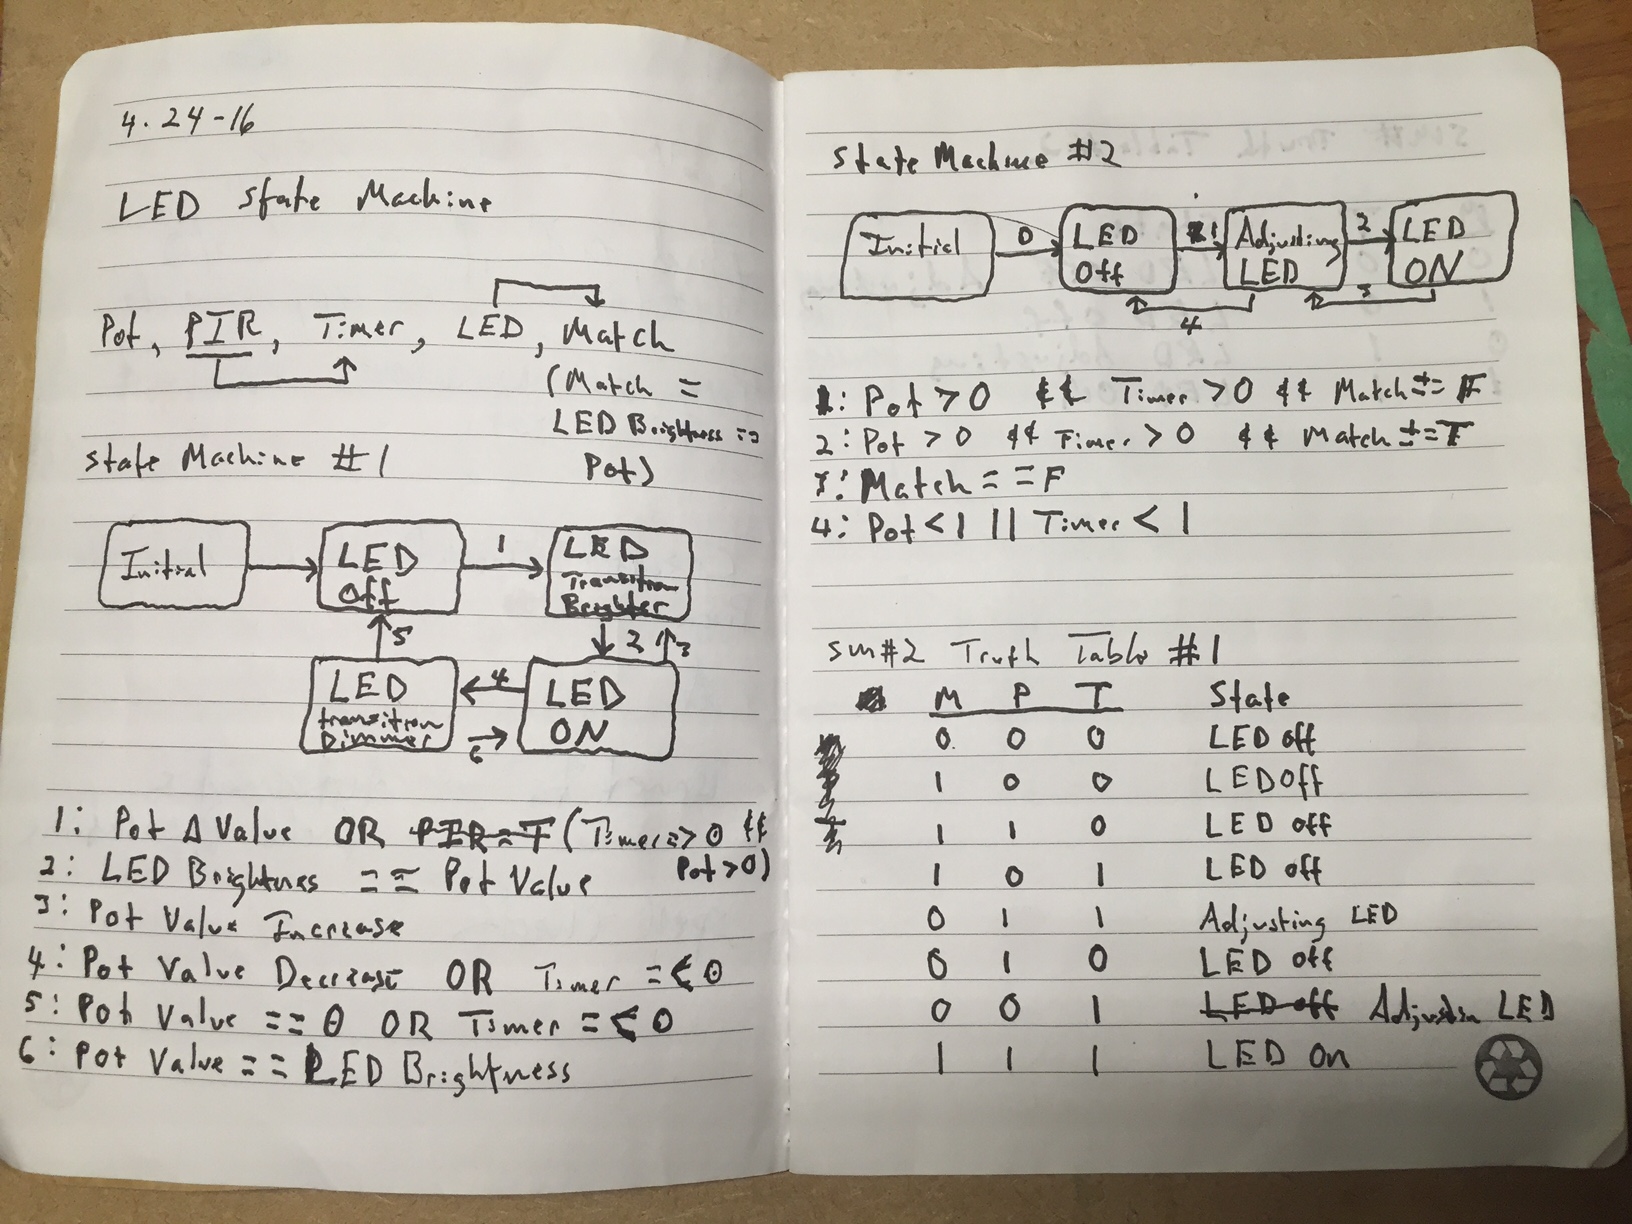 4.24-16
LED State Machine
Pot, PIR, Timer, LED, Match
(Match =
LED Brightness ==
Pot)
State Machine #1
Initial
LED
Off
1
LED
Transition
Brighter
5
2
3
LED
transition
Dimmer
4
6
LED
ON
1: Pot Δ Value OR PIR = T (Timer => 0 &&
Pot > 0)
2: LED Brightness == Pot Value
3: Pot Value Increase
4: Pot Value Decrease OR Timer =< 0
5: Pot Value == 0 OR Timer =< 0
6: Pot Value == LED Brightness
State Machine #2
Initial
0
LED
Off
1
Adjusting
LED
2
LED
ON
3
4
1: Pot > 0 && Timer > 0 && Match == F
2: Pot > 0 && Timer > 0 && Match == T
3: Match == F
4: Pot < 1 || Timer < 1
sm#2 Truth Table #1
M P T State
0 0 0 LED off
1 0 0 LED Off
1 1 0 LED off
1 0 1 LED off
0 1 1 Adjusting LED
0 1 0 LED off
0 0 1 LED off Adjustin LED
1 1 1 LED On